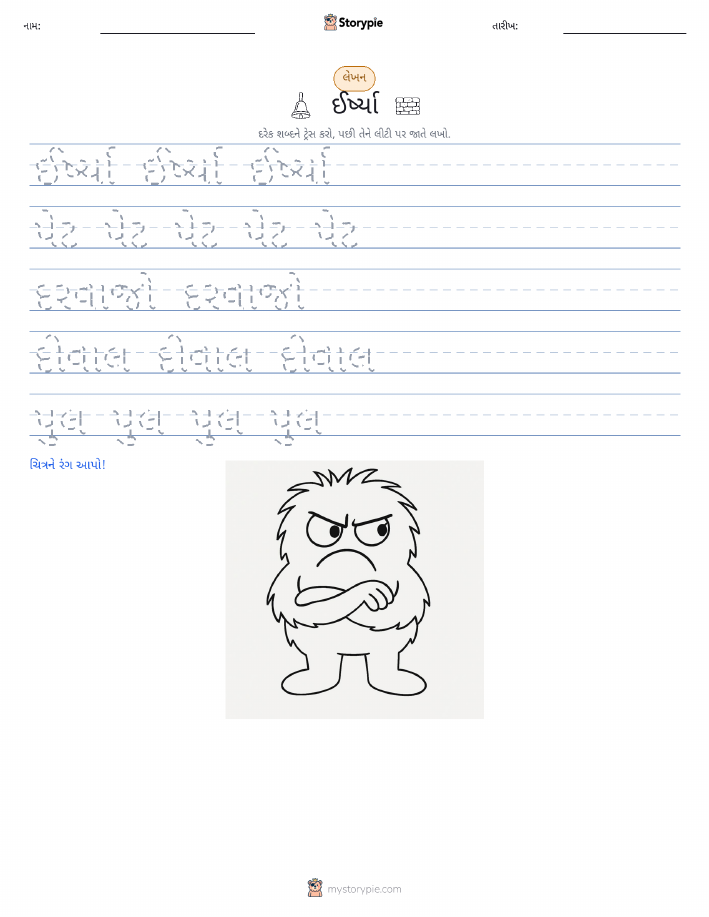 નામ:
Storypie
તારીખ:
લેખન
ઈર્ષ્યા
દરેક શબ્દને ટ્રેસ કરો, પછી તેને લીટી પર જાતે લખો.
ઈર્ષ્યા ઈર્ષ્યા ઈર્ષ્યા
પેટ પેટ પેટ પેટ પેટ
દરવાજો દરવાજો
દીવાલ દીવાલ દીવાલ
પુલ પુલ પુલ પુલ
ચિત્રને રંગ આપો!
mystorypie.com